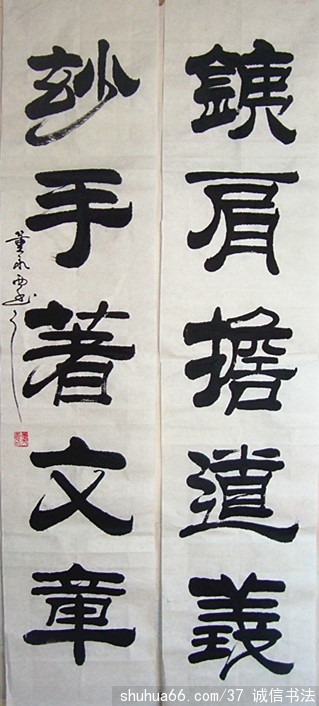 銕肩擔道義
玅手著文章
董永西书
shuhua66.com/37 诚信书法